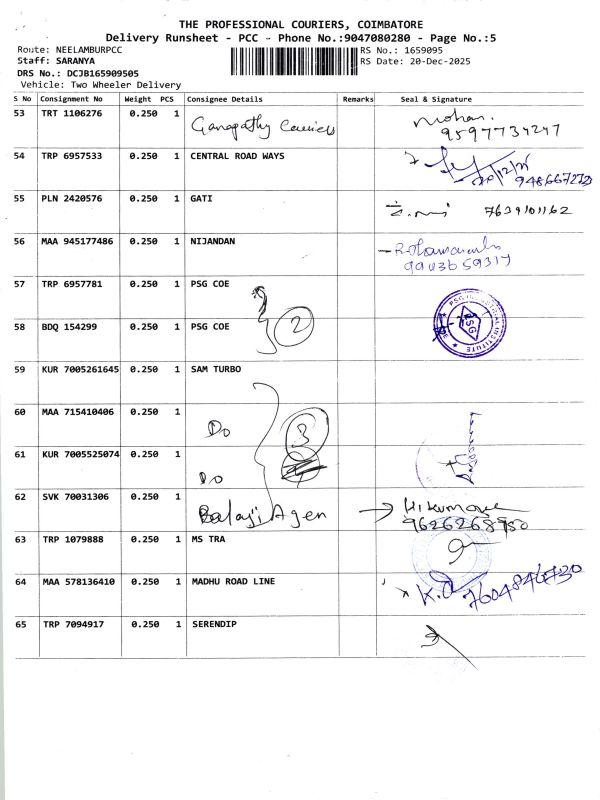 THE PROFESSIONAL COURIERS, COIMBATORE
Delivery Runsheet - PCC - Phone No.:9047080280 - Page No.:5
Route: NEELAMBURPCC RS No.: 1659095
Staff: SARANYA RS Date: 20-Dec-2025
DRS No.: DCJB165909505
Vehicle: Two Wheeler Delivery
S No Consignment No Weight PCS Consignee Details Remarks Seal & Signature
53 TRT 1106276 0.250 1 Ganapathy Couriers Mohan.
9597734247
54 TRP 6957533 0.250 1 CENTRAL ROAD WAYS
55 PLN 2420576 0.250 1 GATI 7639101162
56 MAA 945177486 0.250 1 NIJANDAN
9903659317
57 TRP 6957781 0.250 1 PSG COE
58 BDQ 154299 0.250 1 PSG COE 2
PSG INDUSTRIAL INSTITUTE
PSG
59 KUR 7005261645 0.250 1 SAM TURBO
60 MAA 715410406 0.250 1 Do 3
61 KUR 7005525074 0.250 1 Do
62 SVK 70031306 0.250 1 Balaji Agen
9626268980
63 TRP 1079888 0.250 1 MS TRA
64 MAA 578136410 0.250 1 MADHU ROAD LINE K.
7604846730
65 TRP 7094917 0.250 1 SERENDIP